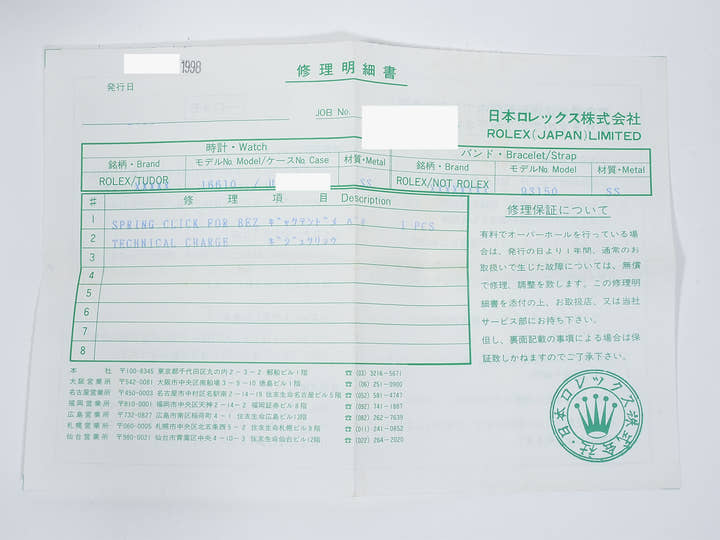 1998
修理明細書
発行日
JOB No.
日本ロレックス株式会社
ROLEX(JAPAN)LIMITED
時計・Watch
バンド・Bracelet/Strap
銘柄・Brand モデルNo. Model/ケースNo. Case 材質・Metal
銘柄・Brand モデルNo. Model 材質・Metal
ROLEX/TUDOR 16610 / SS
ROLEX/NOT ROLEX 93150 SS
# 修理項目 Description
1 SPRING CLICK FOR BEZ ギャクテンドメ バネ 1 PCS
2 TECHNICAL CHARGE ギジュツリョウ
3
4
5
6
7
8
修理保証について
有料でオーバーホールを行っている場
合は、発行の日より1年間、通常のお
取扱いで生じた故障については、無償
で修理、調整を致します。この修理明
細書を添付の上、お取扱店、又は当社
サービス部にお持ち下さい。
但し、裏面記載の事項による場合は保
証致しかねますのでご了承下さい。
本社 〒100-8345 東京都千代田区丸の内2-3-2 郵船ビル1階 ☎(03) 3216-5671
大阪営業所 〒542-0081 大阪市中央区南船場3-5-10 徳島ビル1階 ☎(06) 251-0900
名古屋営業所 〒450-0003 名古屋市中村区名駅南2-14-19 住友生命名古屋ビル5階 ☎(052) 581-4747
福岡営業所 〒810-0001 福岡市中央区天神2-14-2 福岡証券ビル8階 ☎(092) 741-1887
広島営業所 〒732-0827 広島市南区稲荷町4-1 住友生命広島ビル ☎(082) 262-7639
札幌営業所 〒060-0005 札幌市中央区北五条西5-2 住友生命札幌ビル9階 ☎(011) 241-0852
仙台営業所 〒980-0021 仙台市青葉区中央4-10-3 住友生命仙台ビル12階 ☎(022) 264-2020
日本ロレックス株式会社